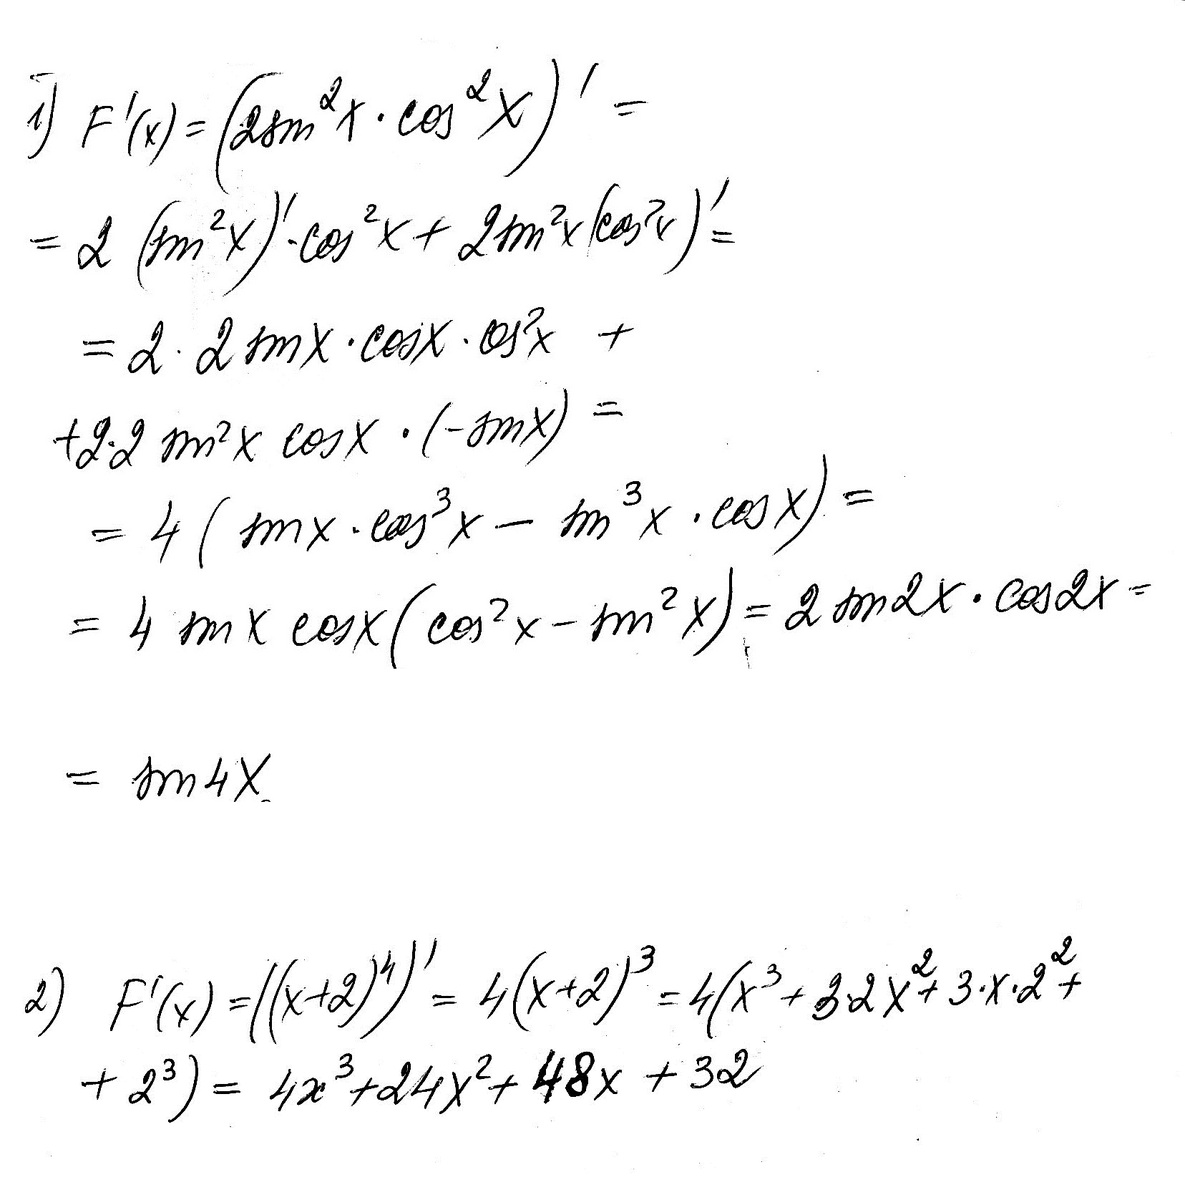 1) F'(x) = (2sin²x · cos²x)' =
= 2 (sin²x)' · cos²x + 2sin²x (cos²x)' =
= 2 · 2 sinx · cosx · cos²x +
+2·2 sin²x cosx · (-sinx) =
= 4 ( sinx · cos³x − sin³x · cosx) =
= 4 sinx cosx ( cos²x − sin²x) = 2 sin2x · cos2x =
= sin4x.
2) F'(x) = ((x+2)⁴)' = 4(x+2)³ = 4(x³ + 3·2x² + 3·x·2² +
+ 2³) = 4x³+24x²+ 48x + 32